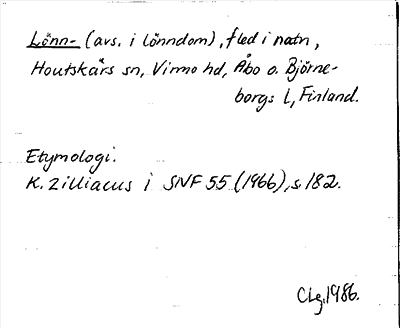 Lönn- (avs. i lönndom), fled i natn,
Houtskärs sn, Virmo hd, Åbo o. Björne-
borgs l, Finland.
Etymologi.
K. Zilliacus i SNF 55 (1966), s. 182.
CLg. 1986.